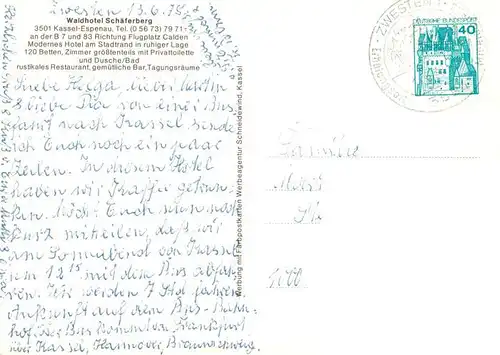 Zwesten 13.6.78
Waldhotel Schäferberg
3501 Kassel-Espenau, Tel. (0 56 73) 79 71-
an der B 7 und 83 Richtung Flugplatz Calden
Modernes Hotel am Stadtrand in ruhiger Lage
120 Betten, Zimmer größtenteils mit Privattoilette
und Dusche/Bad
rustikales Restaurant, gemütliche Bar, Tagungsräume
Liebe Helga, lieber Martin
& liebe Pia von einer Aus
fahrt nach Kassel sende
ich Euch noch ein paar
Zeilen. In diesem Hotel
haben wir Kaffee getrun-
ken. Möcht Euch nun noch
kurz mitteilen, daß wir
am Sonnabend von Kassel
um 12 15 mit dem Bus abfah-
ren. Wir werden 7 Std fahren.
Ankunft auf dem Bus-Bahn-
hof. Der Bus kommt von Frankfurt
über Kassel, Hannover, Braunschweig.
Werbung mit Farbpostkarten Werbeagentur Schneidewind, Kassel
ZWESTEN 1
DEUTSCHE BUNDESPOST
40
Familie